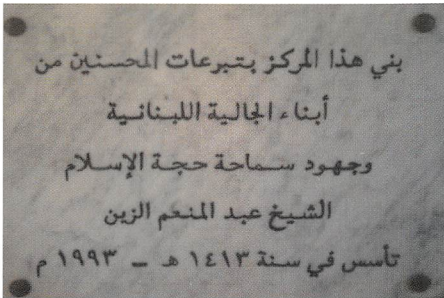 بني هذا المركز بتبرعات المحسنين من
أبناء الجالية اللبنانية
وجهود سماحة حجة الإسلام
الشيخ عبد المنعم الزين
تأسس في سنة ١٤١٣ هـ – ١٩٩٣ م